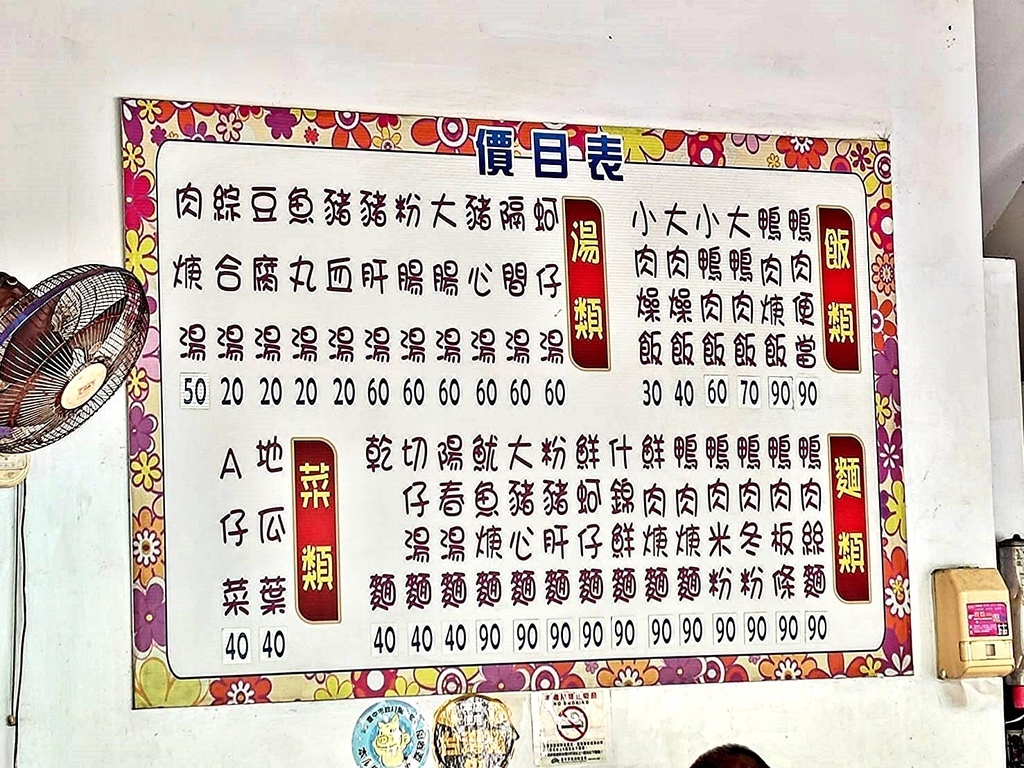 價目表
飯類
鴨肉便當 90
鴨肉焿飯 90
大鴨肉飯 70
小鴨肉飯 60
大肉燥飯 40
小肉燥飯 30
湯類
蚵仔湯 60
隔間湯 60
豬心湯 60
大腸湯 60
粉腸湯 60
豬肝湯 60
豬血湯 20
魚丸湯 20
豆腐湯 20
綜合湯 20
肉焿湯 50
麵類
鴨肉絲麵 90
鴨肉板條 90
鴨肉冬粉 90
鴨肉米粉 90
鴨肉焿麵 90
鮮肉焿麵 90
什錦鮮麵 90
鮮蚵仔麵 90
粉豬肝麵 90
大豬心麵 90
魷魚焿麵 90
陽春湯麵 40
切仔湯麵 40
乾麵 40
菜類
地瓜葉 40
A仔菜 40